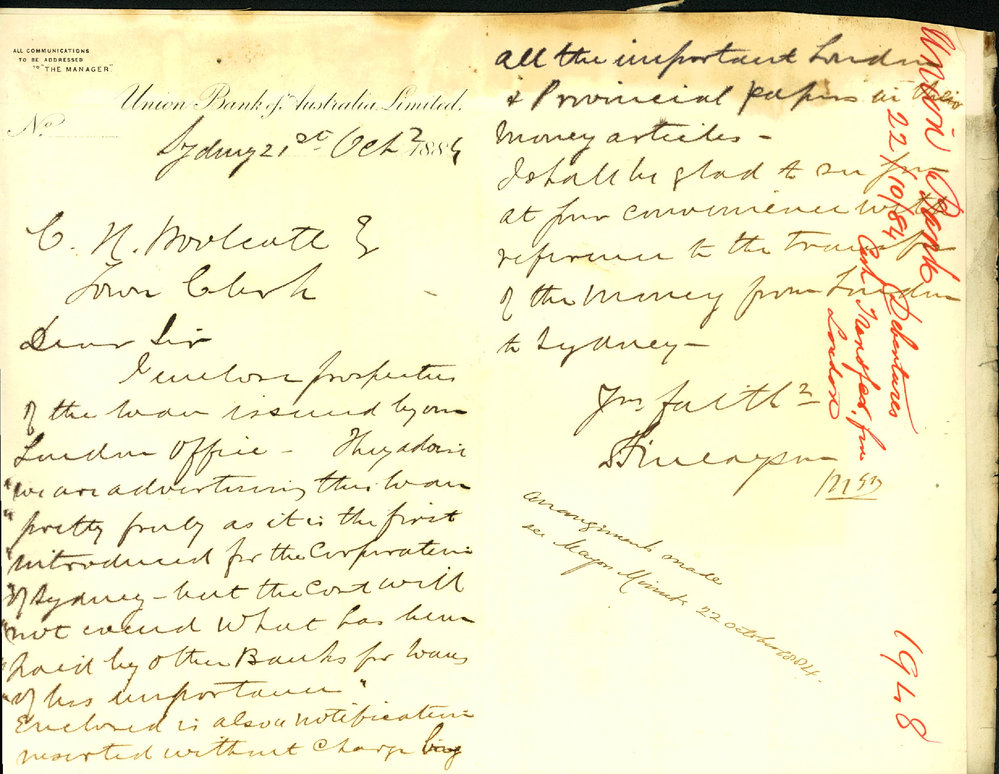 ALL COMMUNICATIONS
TO BE ADDRESSED
TO "THE MANAGER"
Union Bank of Australia Limited.
No
Sydney 21st Octr 1884
C. H. Woolcott Eq
Town Clerk
Dear Sir
I enclose prospectus
of the loan issued by our
London Office - They advise
"we are advertising this loan
"pretty freely as it is the first
"introduced for the Corporation
"of Sydney - but the cost will
"not exceed what has been
"paid by other Banks for loans
"of less importance"
Enclosed is also a notification
inserted without charge by
all the important London
& Provincial papers in their
money articles -
I shall be glad to see you
at your convenience with
reference to the transfer
of the money from London
to Sydney -
Yrs faithy
Finlayson
Mgr
arrangements made
see Mayor Minute 22 October 1884.
Union Bank
22/10/84 Debentures
Cash Transfer from
London
1948